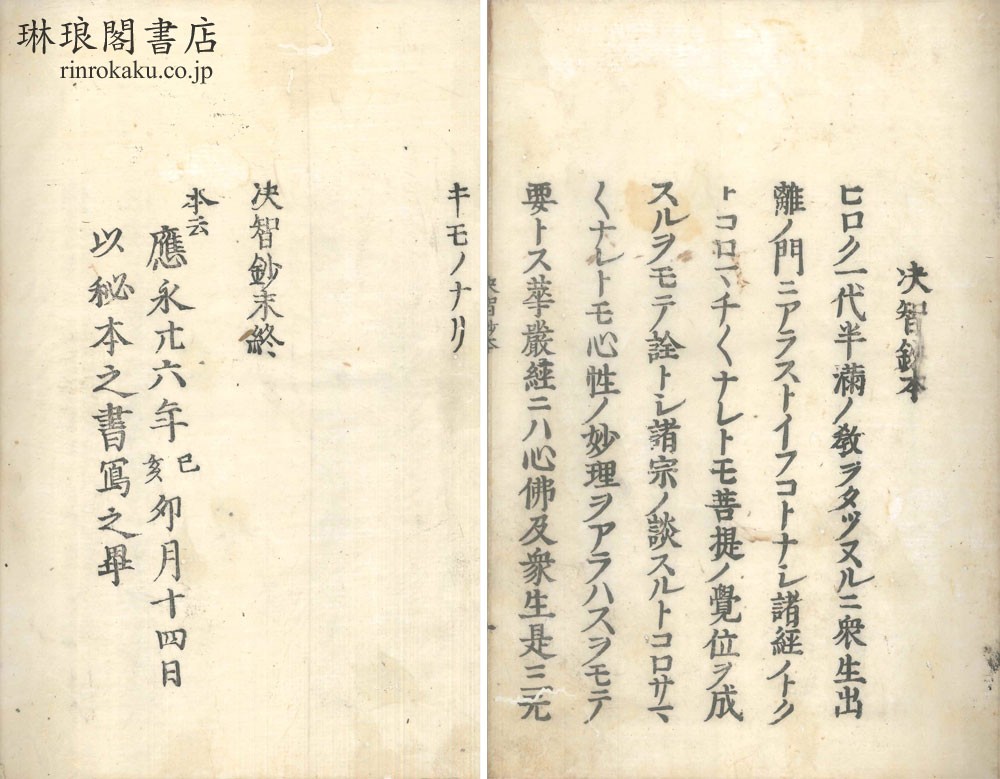 琳琅閣書店
rinrokaku.co.jp
决智鈔本
ヒロク一代半滿ノ教ヲタツヌルニ衆生出
離ノ門ニアラストイフコトナシ諸經ノトク
トコロマチ〱ナレトモ菩提ノ覺位ヲ成
スルヲモテ詮トシ諸宗ノ談スルトコロサマ
〱ナレトモ心性ノ妙理ヲアラハスヲモテ
要トス華嚴經ニハ心佛及衆生是三无
决智鈔本
キモノナリ
决智鈔末終
本云
應永廿六年己亥夘月十四日
以秘本之書寫之畢